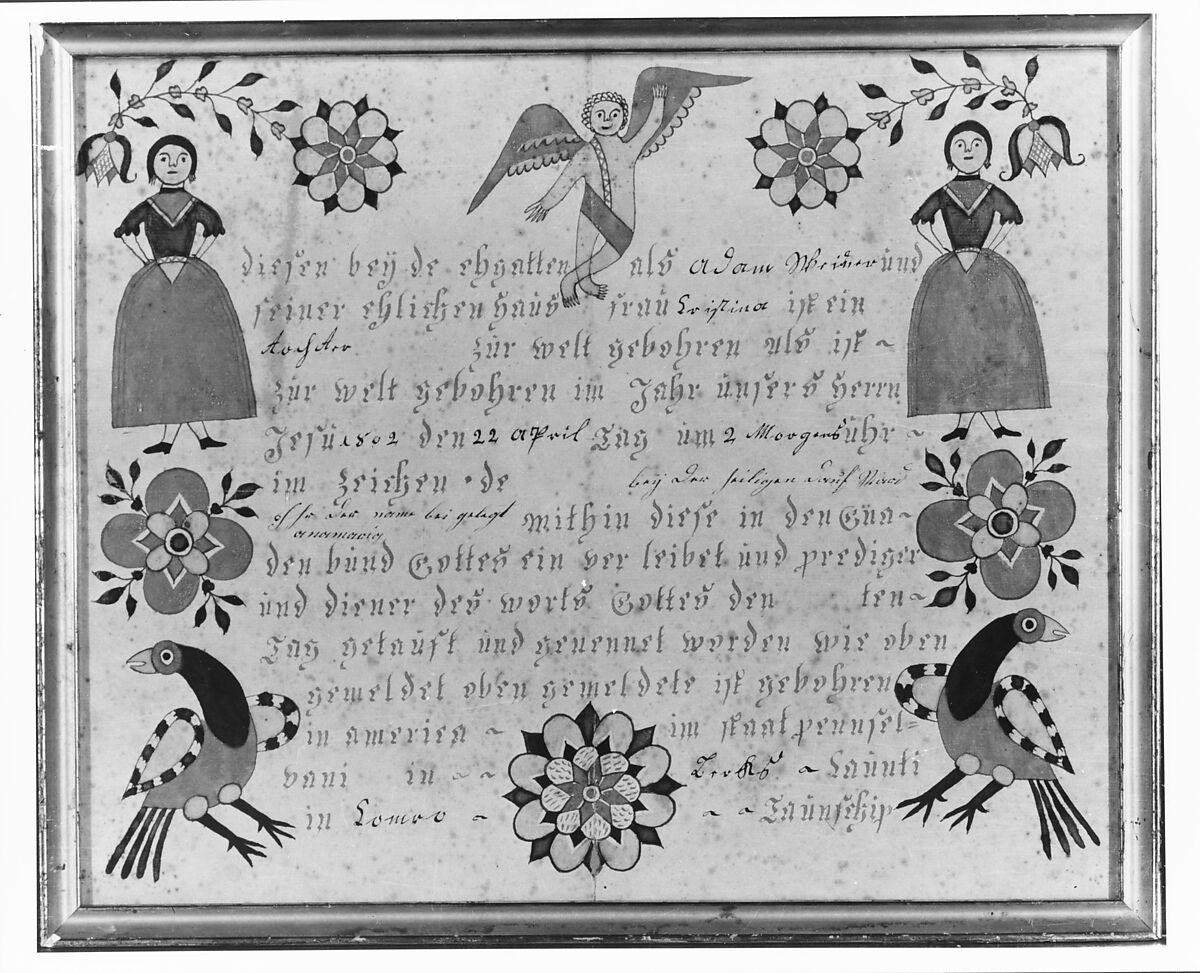 diesen bey de ehgatten als Adam Weiver und
seiner ehlichen haus frau Cristina ist ein
tochter zur welt gebohren als ist ~
zur welt gebohren im Jahr unsers herrn
Jesu 1802 den 22 April Tag um 2 Morgens uhr ~
im zeichen de bey der heiligen Dauf
der name bei gelegt mithin diese in den Gna~
anamaria
den bund Gottes ein ver leibet und prediger
und diener des worts Gottes den ten~
Tag getauft und genennet worden wie oben
gemeldet oben gemeldete ist gebohren
in america ~ im staat pennsel=
vani in ~ ~ Berks ~ Caunti
in Comro ~ ~ ~ Taunschip